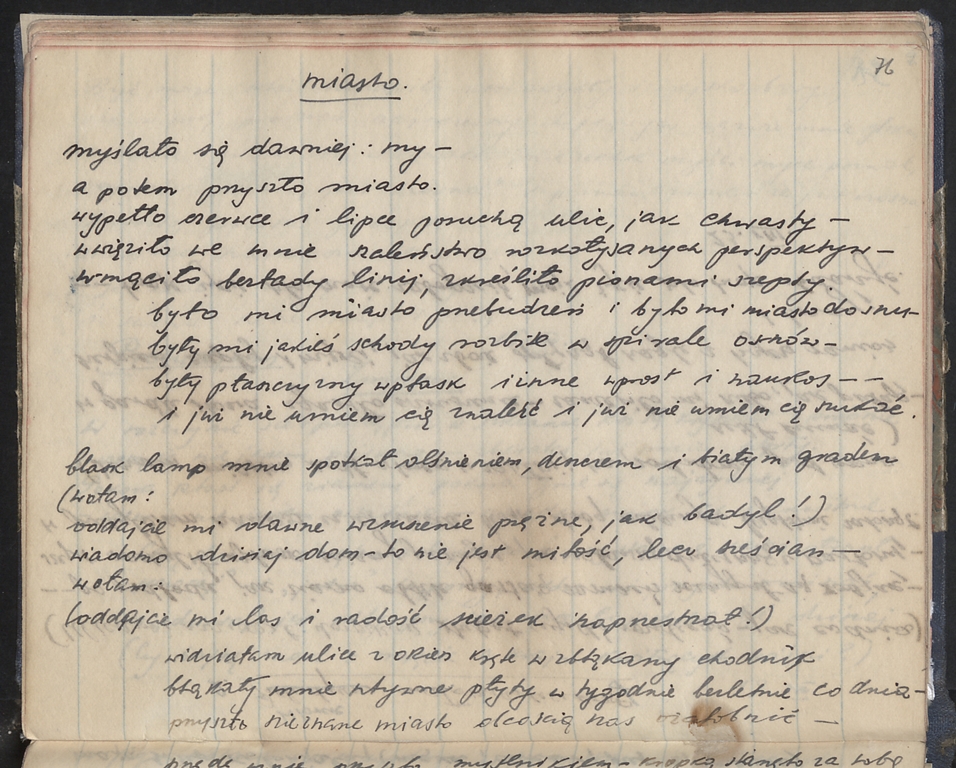 76
miasto.
myślało się dawniej: my –
a potem przyszło miasto.
wypełło czerwce i lipce posuchą ulic, jak chwasty –
uwięziło we mnie szaleństwo rozkołysanych perspektyw –
wmąciło bezłady linij, skreśliło pionami szepty.
było mi miasto przebudzeń i było mi miasto do snu –
były mi jakieś schody rozbite w spirale osnów –
były płaszczyzny wpłask i inne wprost i naukos – –
i już nie umiem cię znaleźć i już nie umiem cię szukać.
blask lamp mnie spotkał olśnieniem, deszczem i białym gradem
(wołam:
oddajcie mi dawne wzruszenie prężne, jak badyl!)
wiadomo dzisiaj dom – to nie jest miłość, lecz sześcian –
wołam:
(oddajcie mi las i radość ścieżek naprzestrzał!)
widziałam ulice z okien kręte w zbłąkany chodnik
błąkały mnie sztywne płyty w tygodnie bezletnie co dnia –
przyszło nieznane miasto obcością nas żałobnić –
mnie myślnikiem – kropką stanęło za tobą